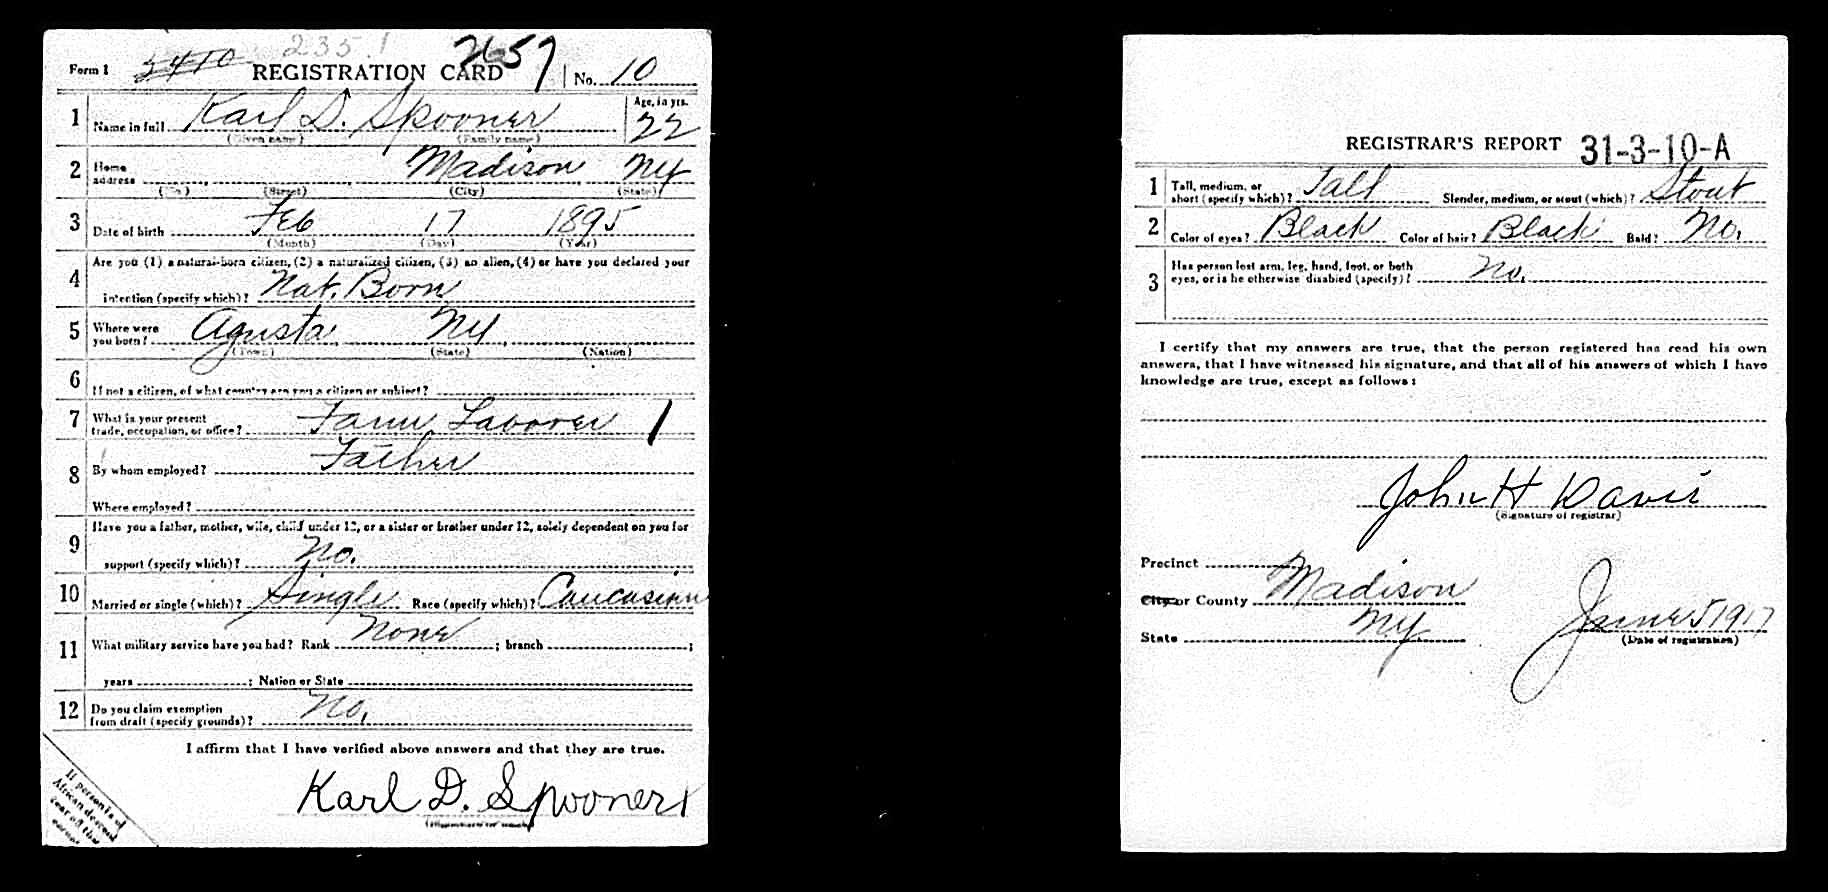 Form 1 5410 235.1 REGISTRATION CARD 2657 No. 10
1 Name in full Karl D. Spooner Age, in yrs. 22
(Given name) (Family name)
2 Home address Madison NY
(No.) (Street) (City) (State)
3 Date of birth Feb 17 1895
(Month) (Day) (Year)
4 Are you (1) a natural-born citizen, (2) a naturalized citizen, (3) an alien, (4) or have you declared your
intention (specify which)? Nat. Born
5 Where were you born? Agusta NY
(Town) (State) (Nation)
6 If not a citizen, of what country are you a citizen or subject?
7 What is your present trade, occupation, or office? Farm Laborer 1
8 By whom employed? Father
Where employed?
9 Have you a father, mother, wife, child under 12, or a sister or brother under 12, solely dependent on you for
support (specify which)? No.
10 Married or single (which)? Single Race (specify which)? Caucasian
11 What military service have you had? Rank None ; branch ;
years ; Nation or State
12 Do you claim exemption from draft (specify grounds)? No.
I affirm that I have verified above answers and that they are true.
Karl D. Spooner
If person is of
African descent
tear off this
corner
REGISTRAR'S REPORT 31-3-10-A
1 Tall, medium, or short (specify which)? Tall Slender, medium, or stout (which)? Stout
2 Color of eyes? Black Color of hair? Black Bald? No.
3 Has person lost arm, leg, hand, foot, or both
eyes, or is he otherwise disabled (specify)? No.
I certify that my answers are true, that the person registered has read his own
answers, that I have witnessed his signature, and that all of his answers of which I have
knowledge are true, except as follows:
John H Davis
(Signature of registrar)
Precinct
City or County Madison
State NY June 5 1917
(Date of registration)